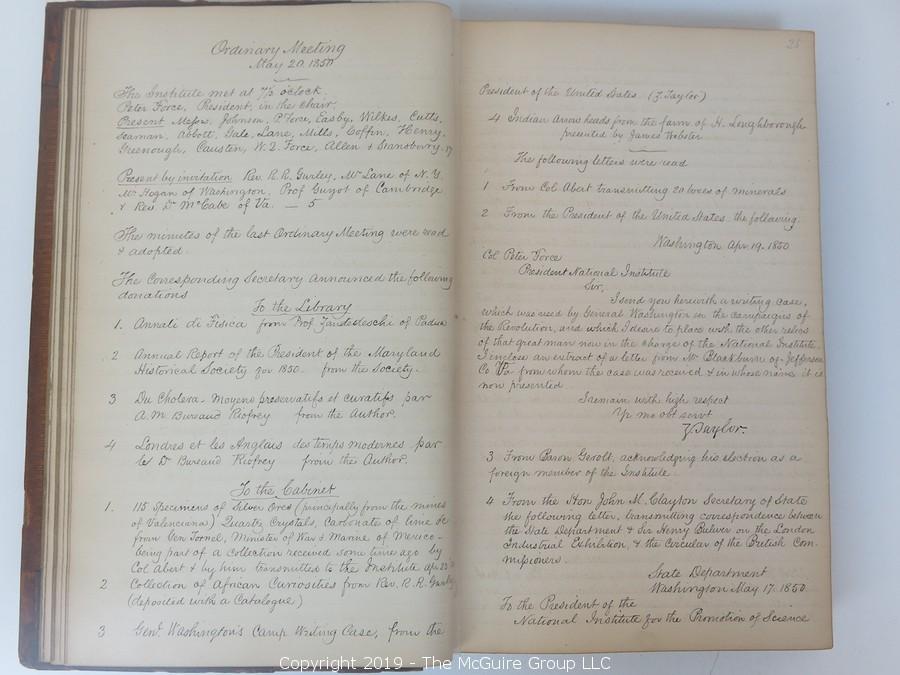 Ordinary Meeting
May 20. 1850
The Institute met at 7½ o'clock.
Peter Force, President, in the chair.
Present Messrs. Johnson, P. Force, Easby, Wilkes, Cutts,
Seaman, Abbott, Gale, Lane, Mills, Coffin, Henry,
Greenough, Causten, W. Q. Force, Allen & Stansbury. 17
Present by invitation Rev. R. R. Gurley, Mr Lane of N. Y.
Mr Hogan of Washington, Prof Guyot of Cambridge
& Rev. Dr McCabe of Va. — 5
The minutes of the last Ordinary Meeting were read
& adopted.
The Corresponding Secretary announced the following
donations
To the Library
1. Annali di Fisica from Prof Zantedeschi of Padua
2 Annual Report of the President of the Maryland
Historical Society for 1850. from the Society.
3 Du Cholera - Moyens preservatifs et curatifs par
A. M. Bureaud Riofrey from the Author.
4 Londres et les Anglais des temps modernes par
le Dr Bureaud Riofrey from the Author.
To the Cabinet
1. 115 Specimens of Silver Ores (principally from the mines
of Valenciana) Quartz Crystals, Carbonate of lime &c
from Gen Tornel, Minister of War & Marine of Mexico-
being part of a collection received some time ago by
Col Abert & by him transmitted to the Institute Apr 23
2 Collection of African Curiosities from Rev. R. R. Gurley
(deposited with a Catalogue)
3 Genl Washington's Camp Writing Case, from the
25
President of the United States. (Z Taylor)
4 Indian Arrow heads from the farm of H. Loughborough
presented by James Webster
The following letters were read
1 From Col Abert transmitting 20 boxes of minerals
2 From the President of the United States the following.
Washington Apr. 19. 1850
Col Peter Force
President National Institute
Sir,
I send you herewith a writing case,
which was used by General Washington in the campaigns of
the Revolution, and which I desire to place with the other relics
of that great man now in the charge of the National Institute.
I enclose an extract of a letter from Mr Blackburn of Jefferson
Co Va from whom the case was received & in whose name it is
now presented.
I remain with high respect
Yr mo obt servt
Z Taylor.
3 From Baron Gerolt, acknowledging his election as a
foreign member of the Institute.
4 From the Hon John M. Clayton Secretary of State
the following letter, transmitting correspondence between
the State Department & Sir Henry Bulwer on the London
Industrial Exhibition, & the Circular of the British Com-
missioners.
State Department
Washington May 17. 1850.
To the President of the
National Institute for the Promotion of Science
Copyright 2019 - The McGuire Group LLC